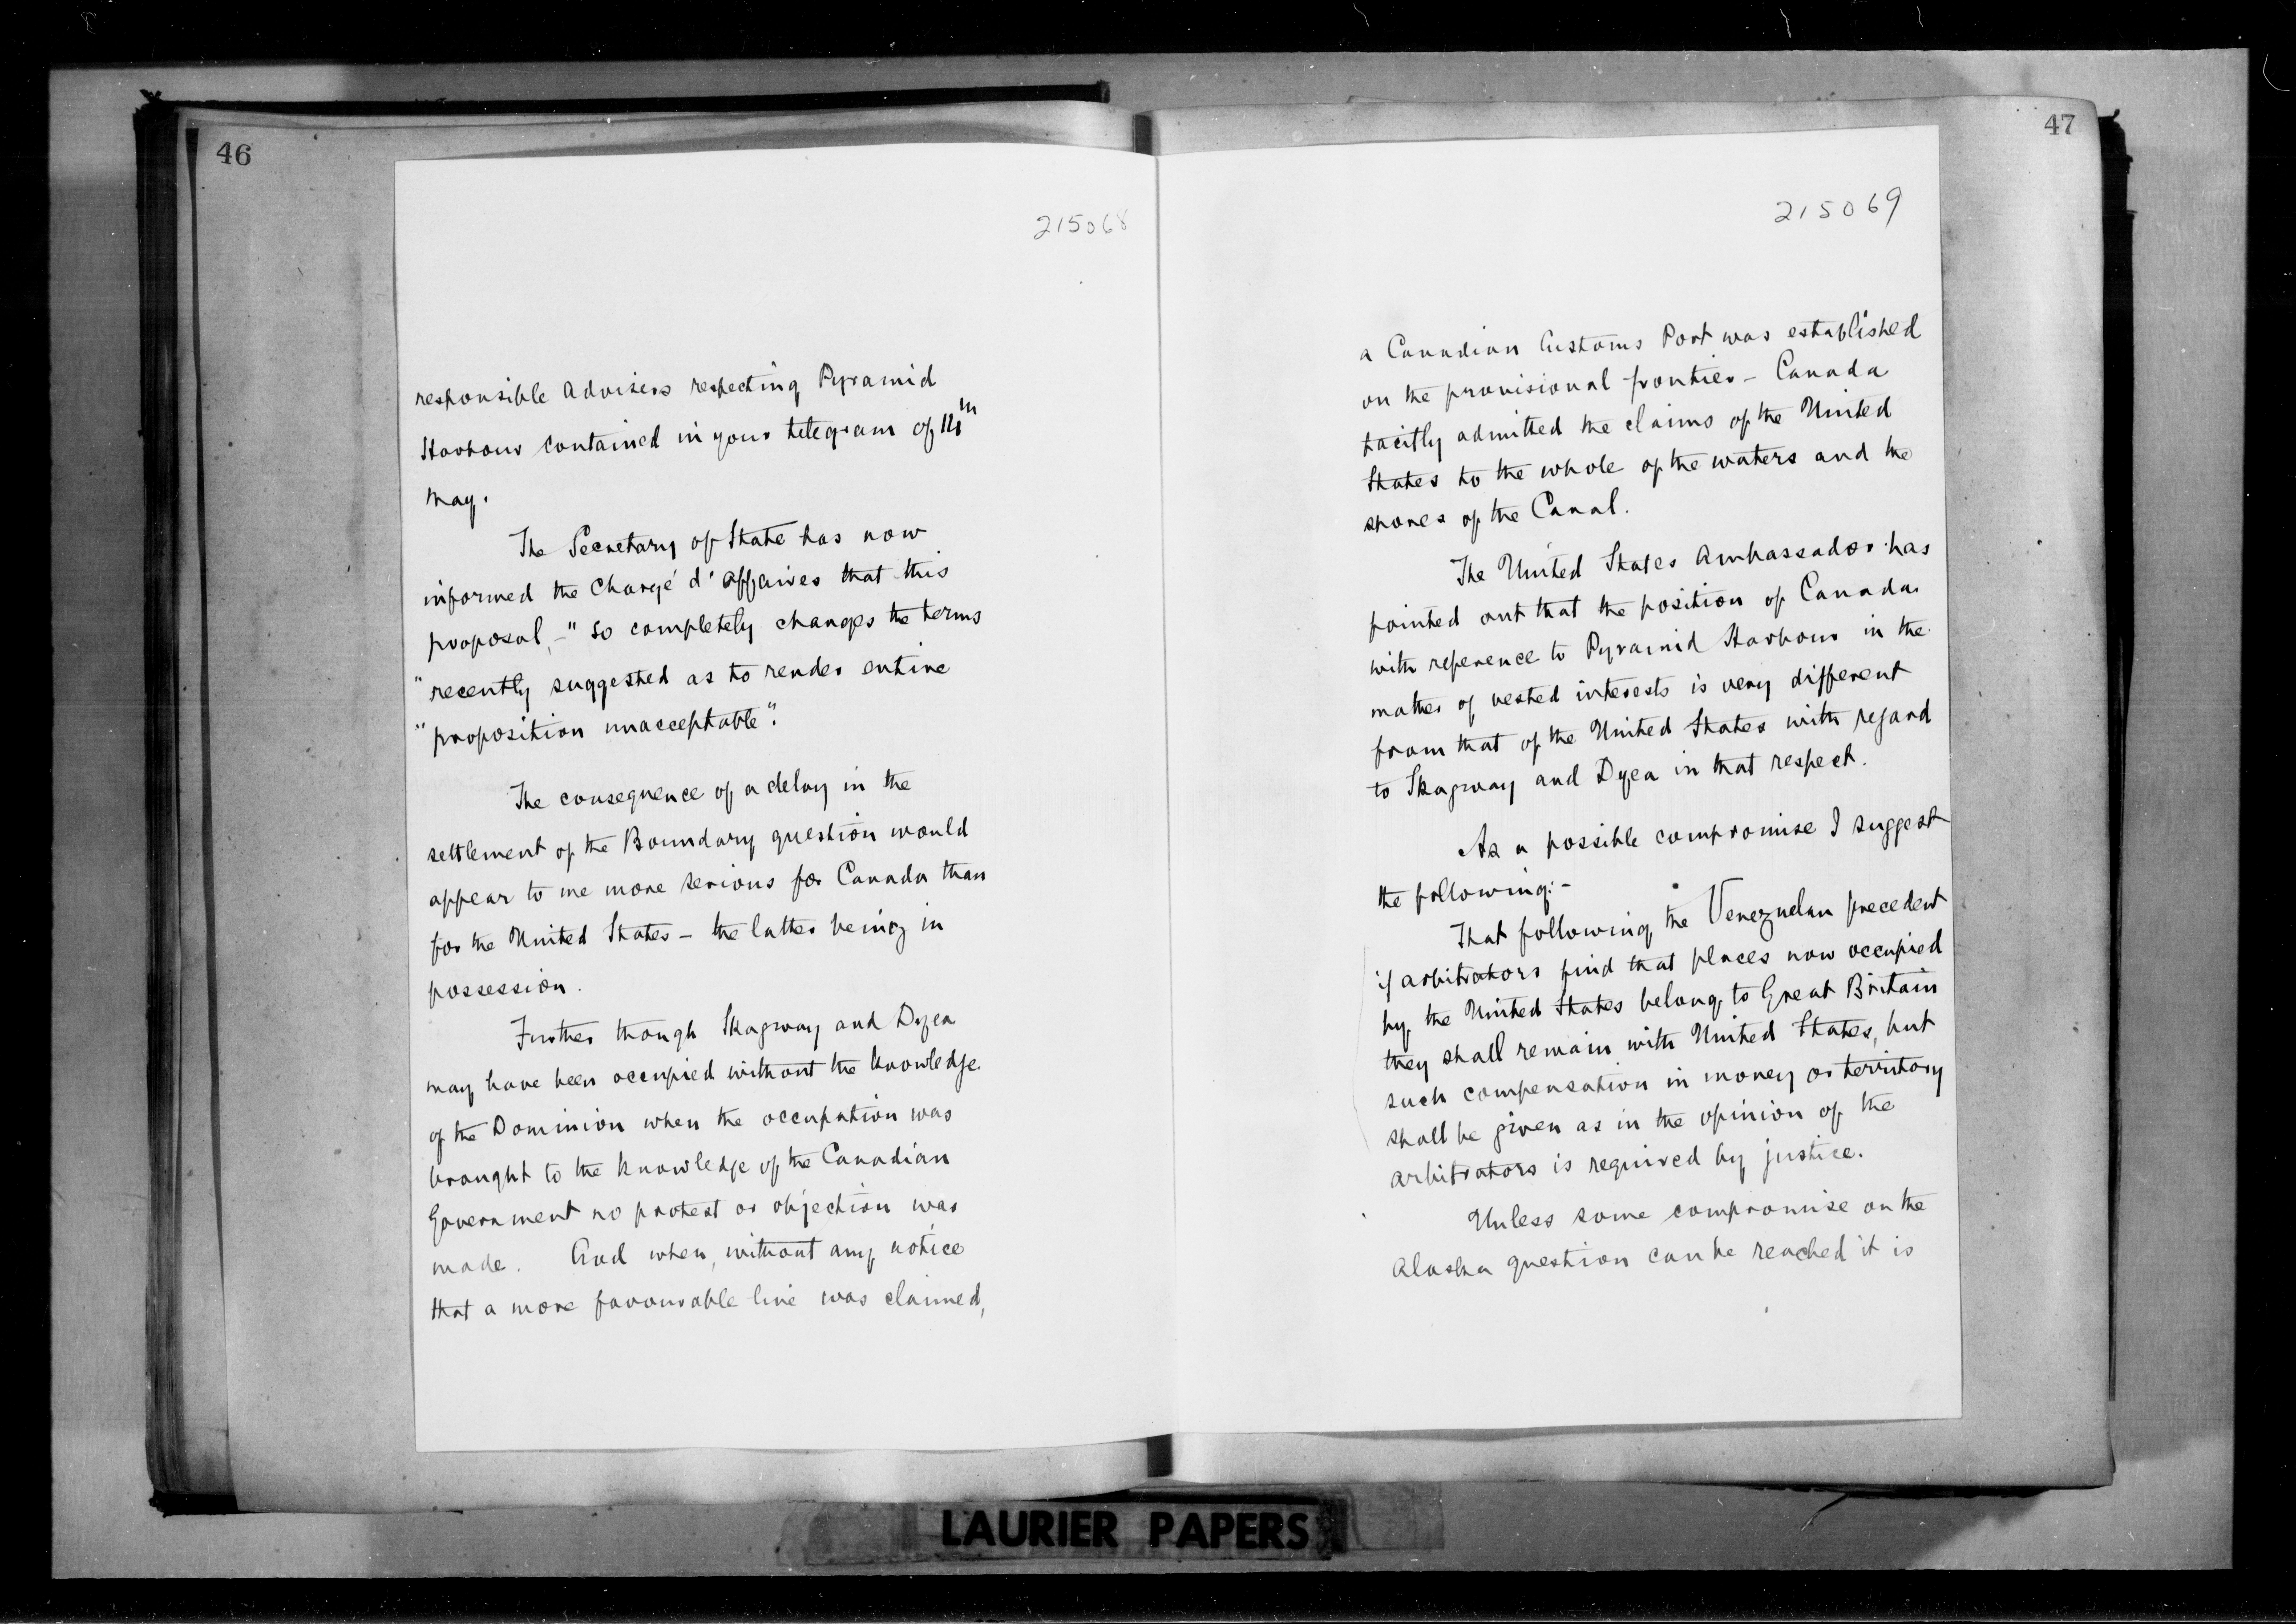 46
215068
responsible Advisers respecting Pyramid
Harbour contained in your telegram of 14th
May.
The Secretary of State has now
informed the Chargé d'Affaires that this
proposal, - "so completely changes the terms
"recently suggested as to render entire
"proposition unacceptable".
The consequence of a delay in the
settlement of the Boundary question would
appear to me more serious for Canada than
for the United States – the latter being in
possession.
Further though Skagway and Dyea
may have been occupied without the knowledge
of the Dominion when the occupation was
brought to the knowledge of the Canadian
Government no protest or objection was
made. And when, without any notice
that a more favourable line was claimed,
47
215069
a Canadian Customs Port was established
on the provisional frontier – Canada
tacitly admitted the claims of the United
States to the whole of the waters and the
shores of the Canal.
The United States Ambassador has
pointed out that the position of Canada
with reference to Pyramid Harbour in the
matter of vested interests is very different
from that of the United States with regard
to Skagway and Dyea in that respect.
As a possible compromise I suggest
the following:-
That following the Venezuelan precedent
if arbitrators find that places now occupied
by the United States belong to Great Britain
they shall remain with United States, but
such compensation in money or territory
shall be given as in the opinion of the
arbitrators is required by justice.
Unless some compromise on the
Alaska question can be reached it is
LAURIER PAPERS